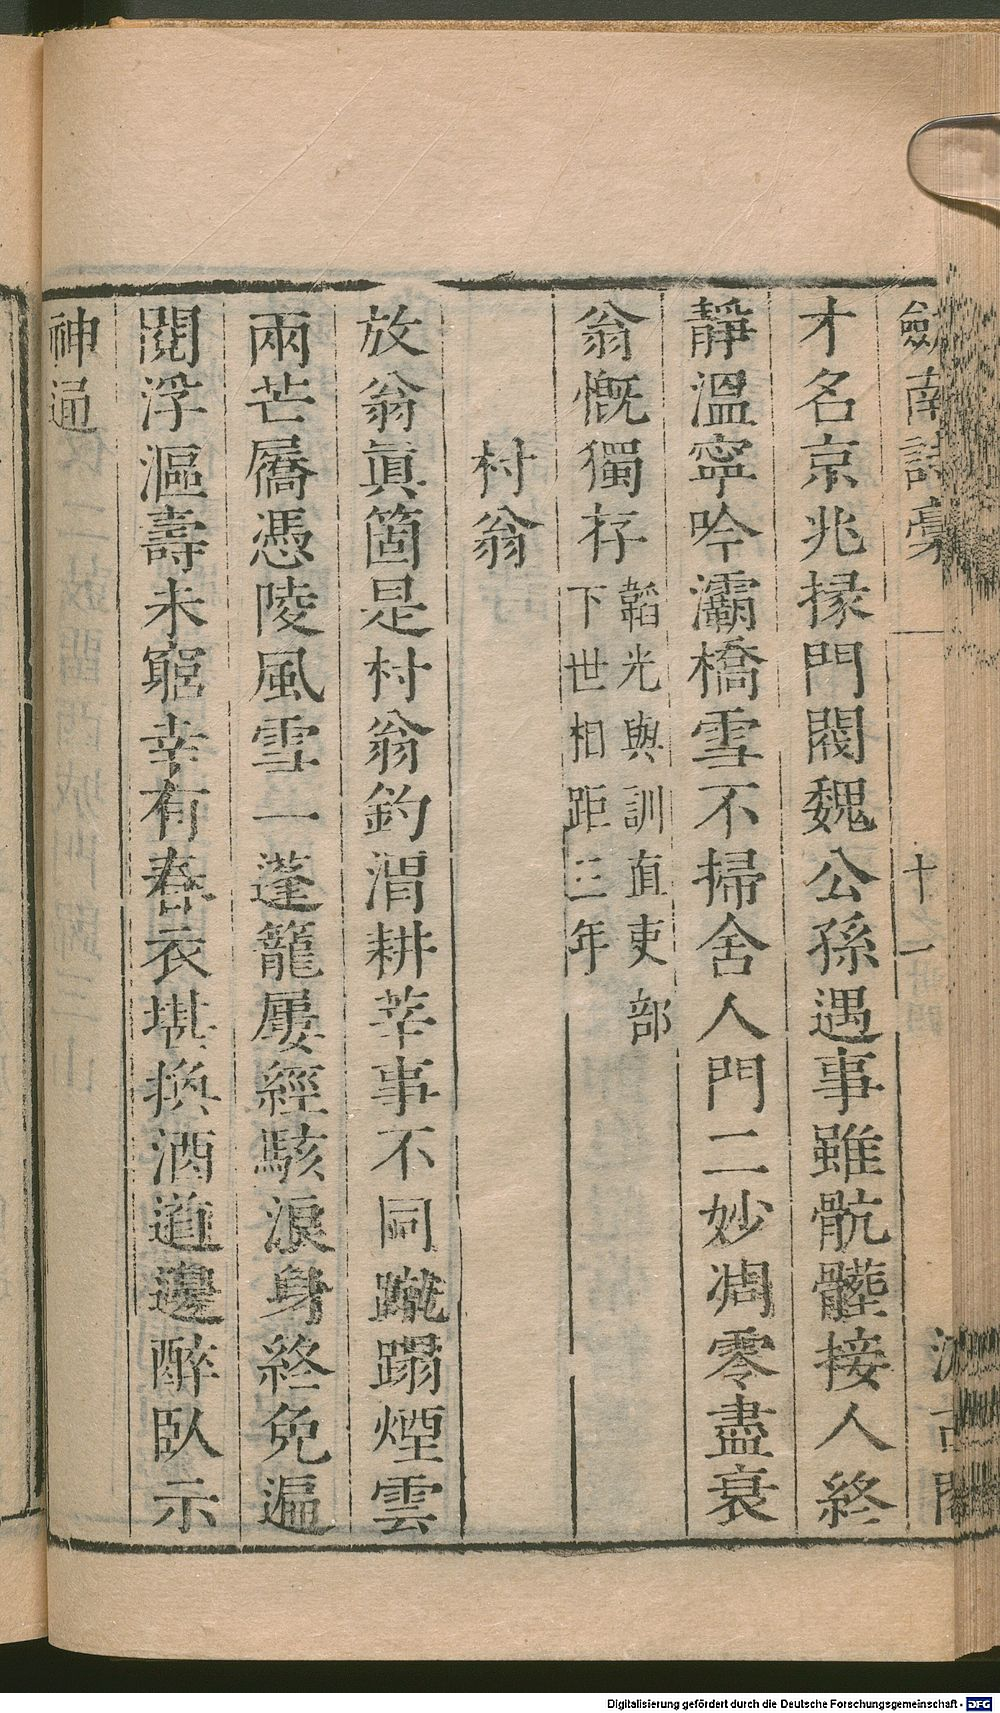 劍南詩稾
十一
汲古閣
才名京兆掾門閥魏公孫遇事雖骯髒接人終
靜溫寧吟灞橋雪不掃舍人門二妙凋零盡衰
翁慨獨存
韜光與訓直吏部
下世相距三年
村翁
放翁眞箇是村翁釣渭耕莘事不同蹴蹋煙雲
兩芒屩憑陵風雪一蓬籠屢經駭浪身終免遍
閱浮漚壽未窮幸有春衣堪換酒道邊醉臥示
神通
Digitalisierung gefördert durch die Deutsche Forschungsgemeinschaft - DFG